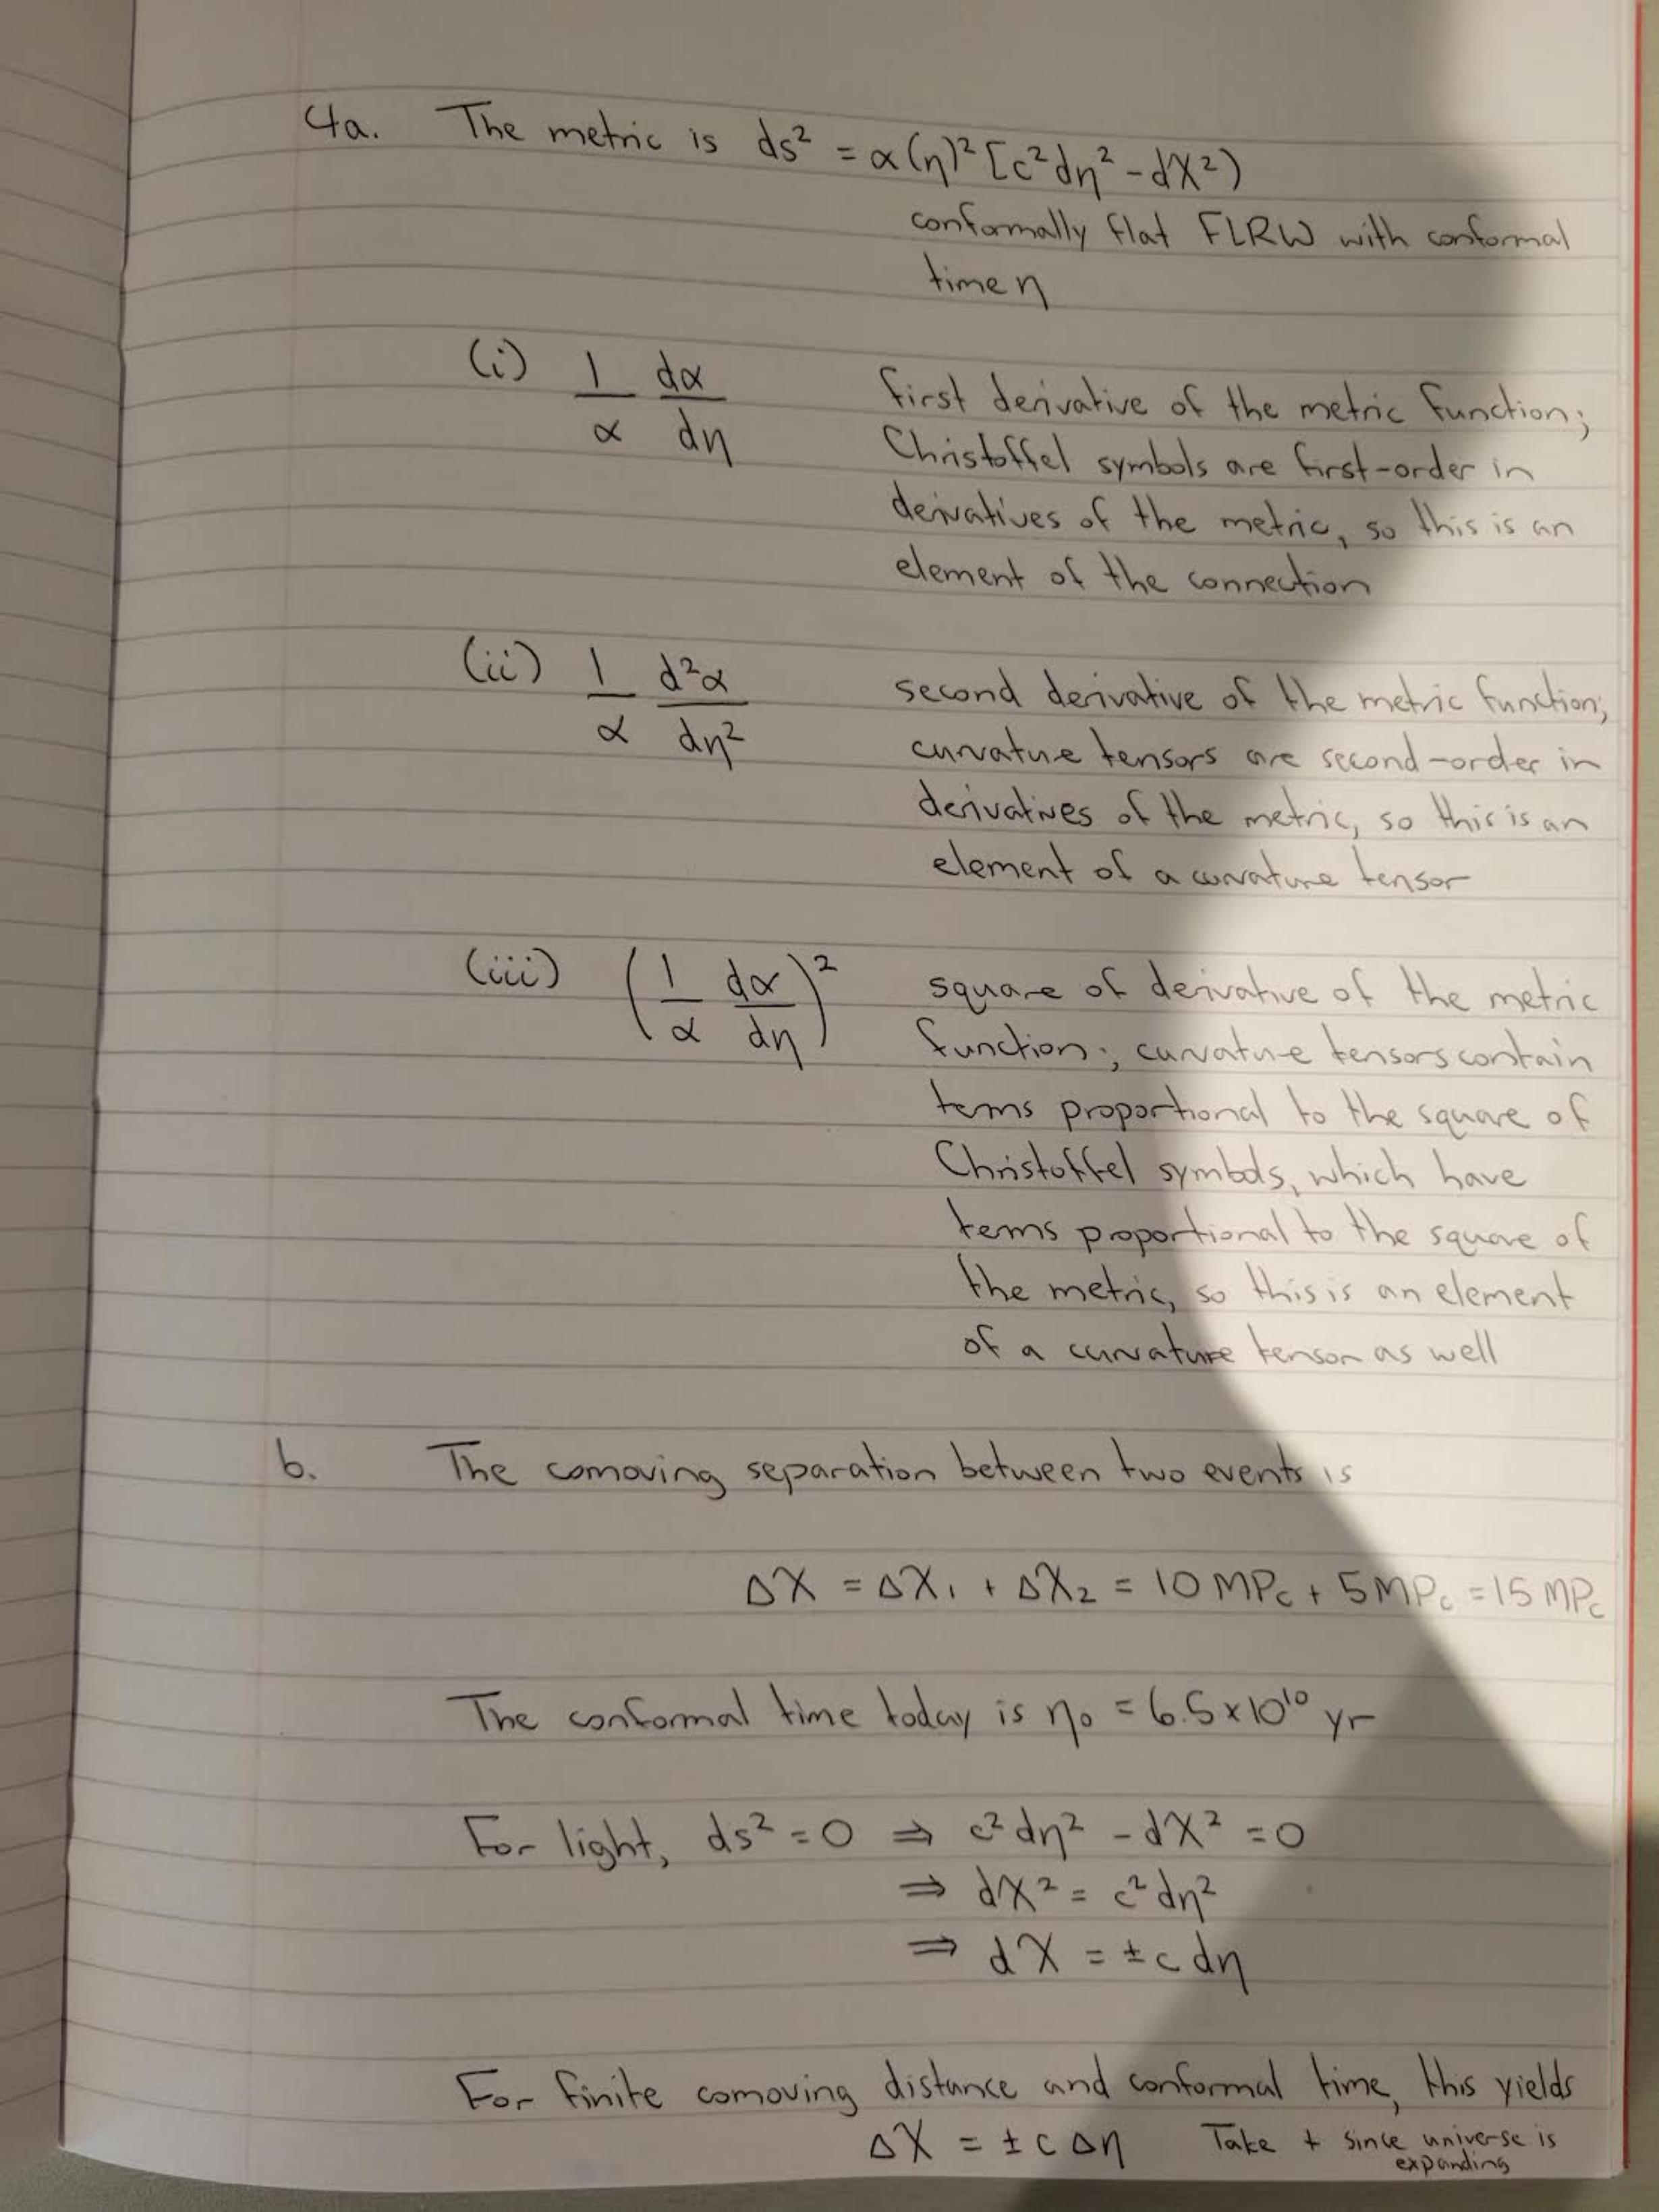 4a. The metric is ds² = α(η)² [c²dη² - dX²)
conformally flat FLRW with conformal
time η
(i) 1/α dα/dη first derivative of the metric function;
Christoffel symbols are first-order in
derivatives of the metric, so this is an
element of the connection
(ii) 1/α d²α/dη² second derivative of the metric function;
curvature tensors are second-order in
derivatives of the metric, so this is an
element of a curvature tensor
(iii) (1/α dα/dη)² square of derivative of the metric
function; curvature tensors contain
terms proportional to the square of
Christoffel symbols, which have
terms proportional to the square of
the metric, so this is an element
of a curvature tensor as well
b. The comoving separation between two events is
ΔX = ΔX₁ + ΔX₂ = 10 MPc + 5 MPc = 15 MPc
The conformal time today is η₀ = 6.5×10¹⁰ yr
For light, ds² = 0 ⇒ c²dη² - dX² = 0
⇒ dX² = c²dη²
⇒ dX = ±c dη
For finite comoving distance and conformal time, this yields
ΔX = ±c Δη Take + since universe is
expanding